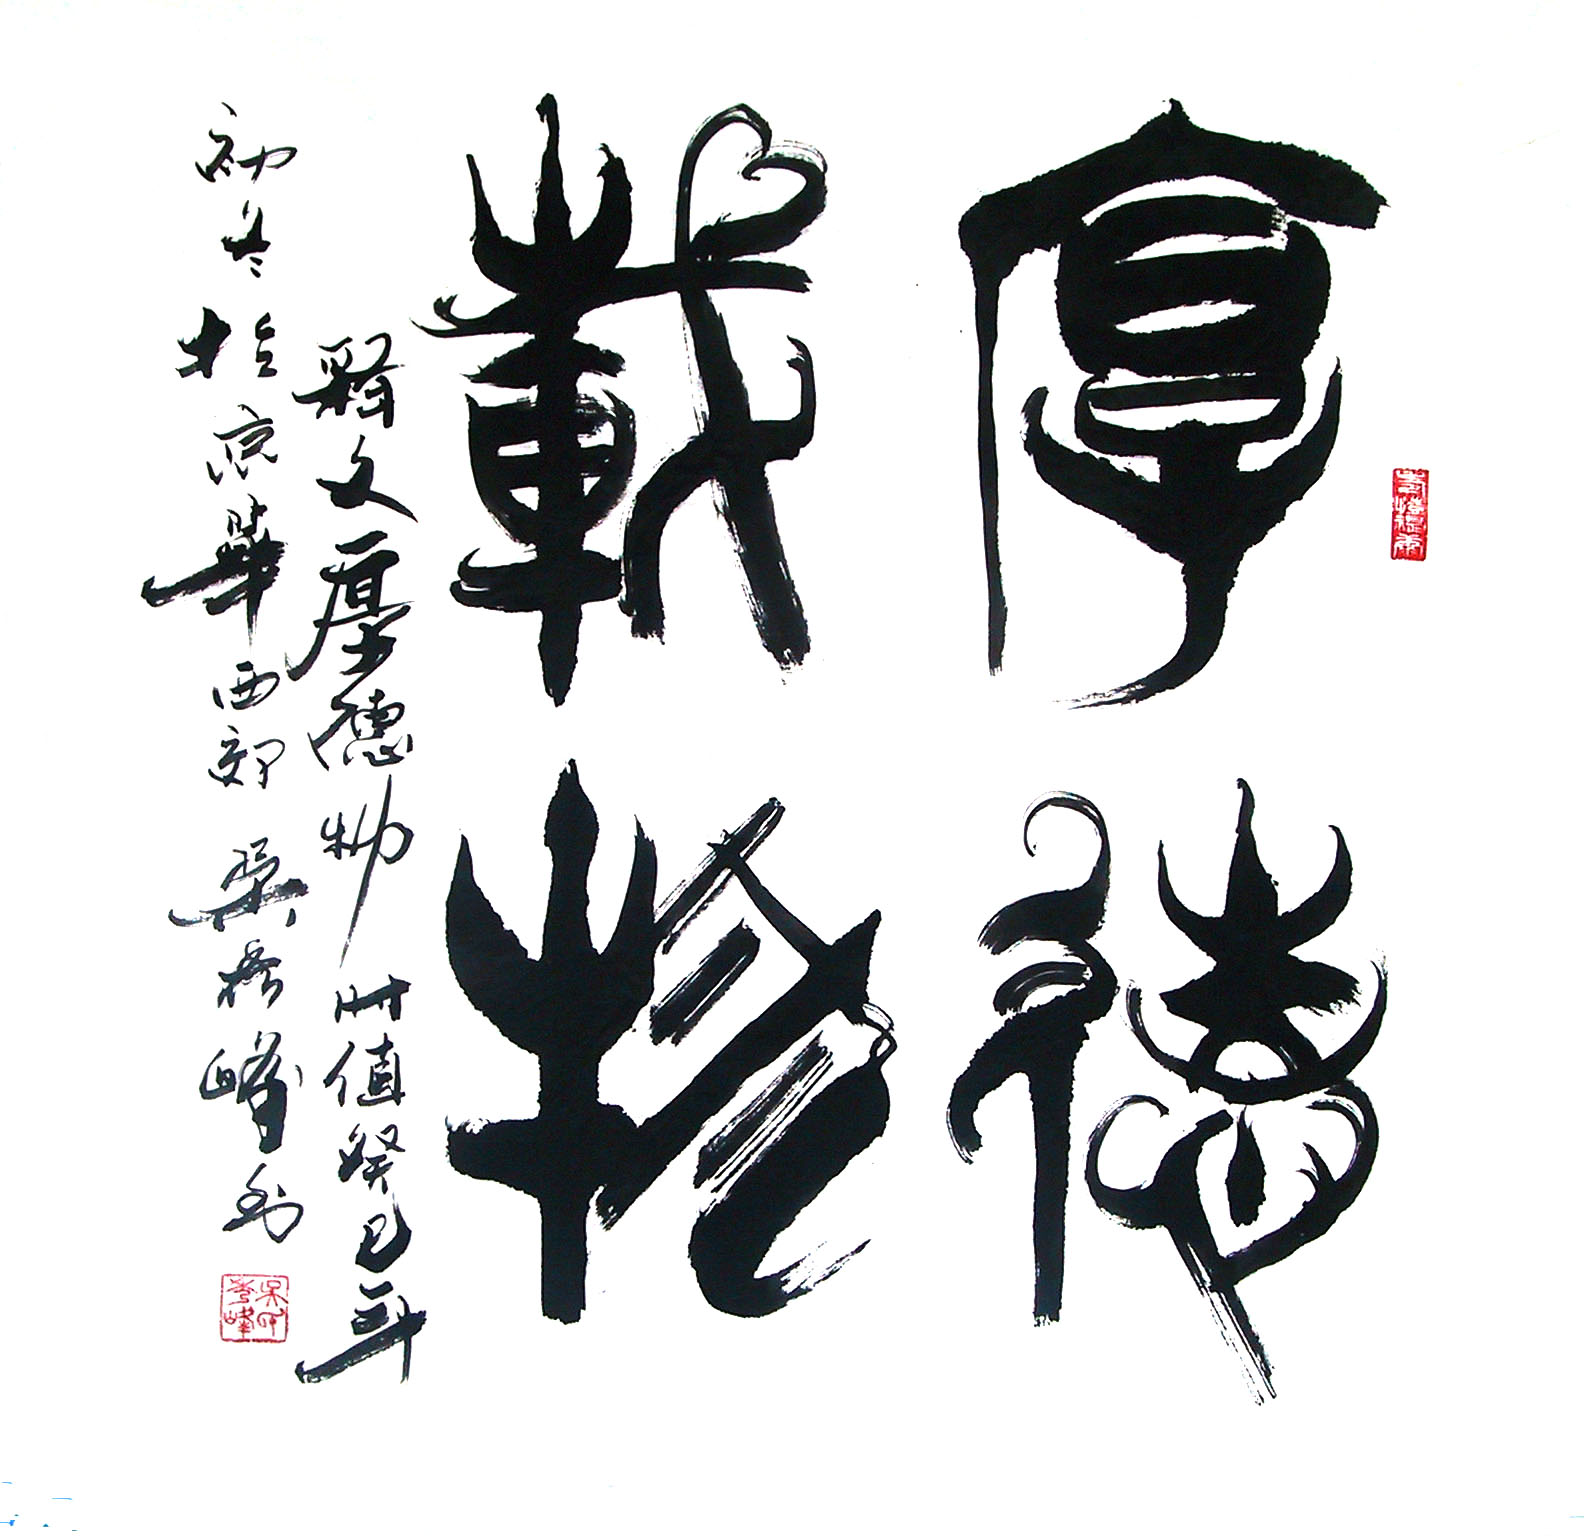 厚德
載物
釋文厚德物时值癸巳年
初冬於京華西郊吴峰书